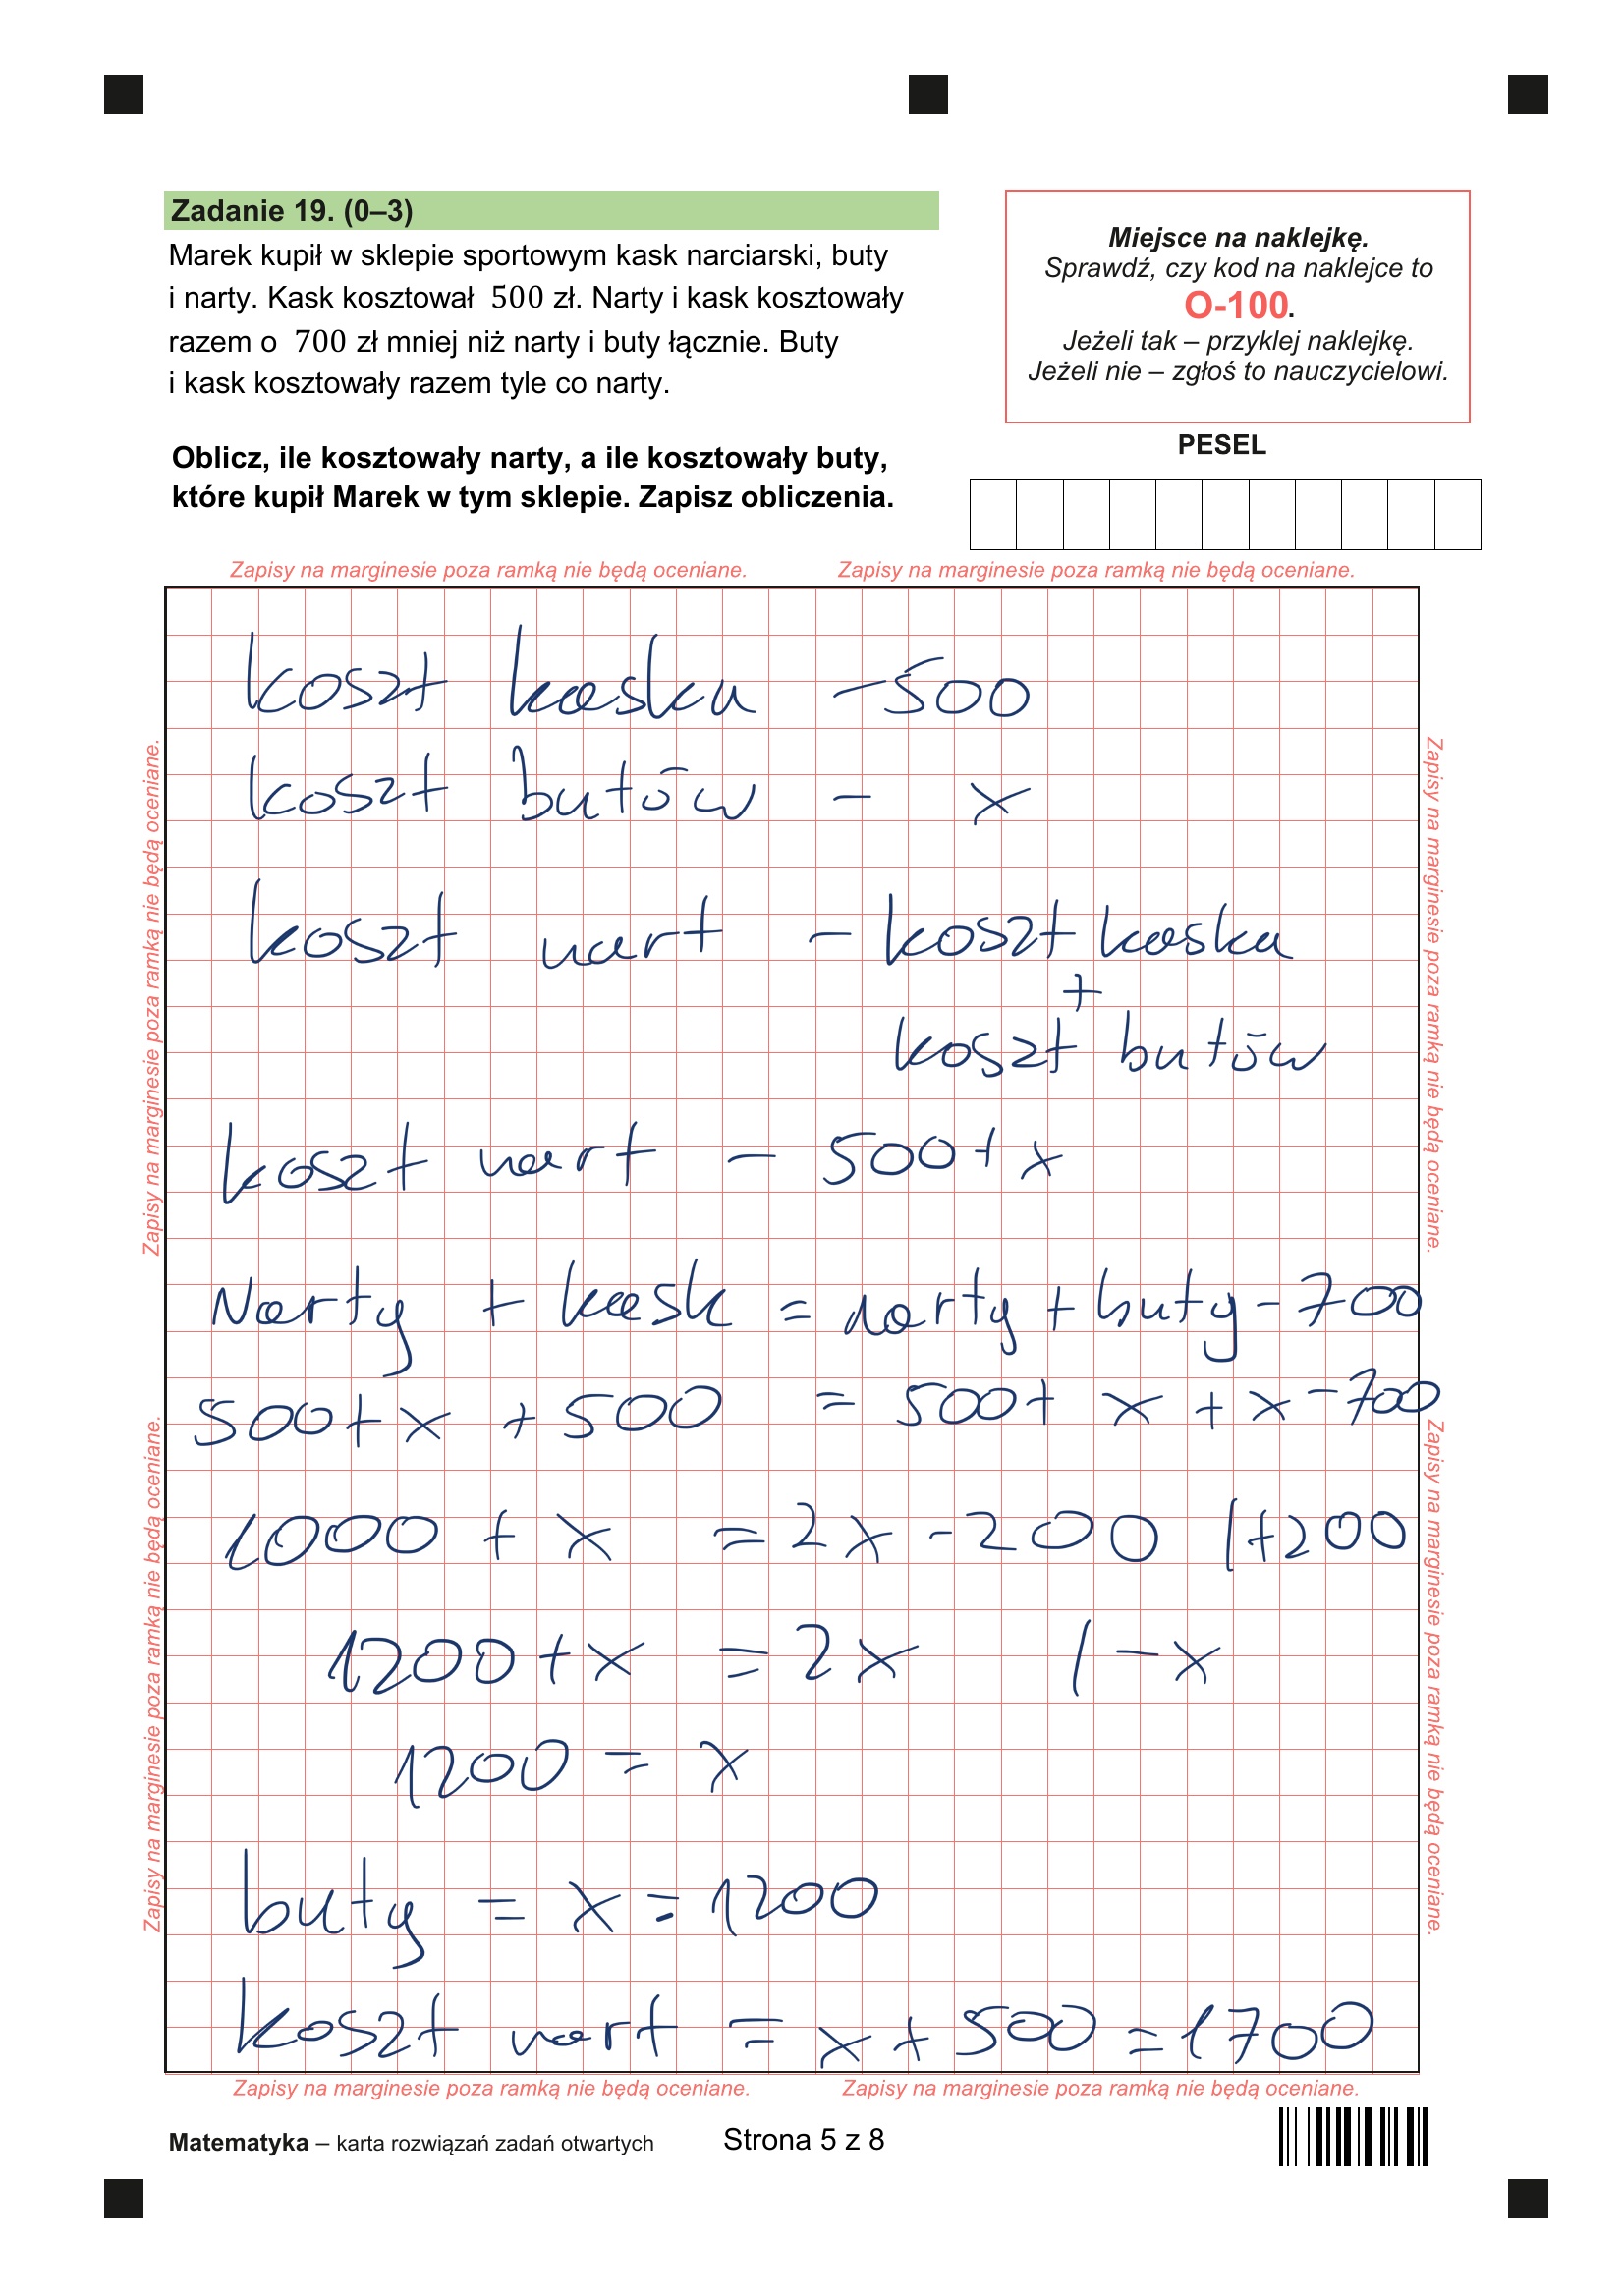 Zadanie 19. (0–3)
Marek kupił w sklepie sportowym kask narciarski, buty
i narty. Kask kosztował 500 zł. Narty i kask kosztowały
razem o 700 zł mniej niż narty i buty łącznie. Buty
i kask kosztowały razem tyle co narty.
Oblicz, ile kosztowały narty, a ile kosztowały buty,
które kupił Marek w tym sklepie. Zapisz obliczenia.
Miejsce na naklejkę.
Sprawdź, czy kod na naklejce to
O-100.
Jeżeli tak – przyklej naklejkę.
Jeżeli nie – zgłoś to nauczycielowi.
PESEL
Zapisy na marginesie poza ramką nie będą oceniane. Zapisy na marginesie poza ramką nie będą oceniane.
Zapisy na marginesie poza ramką nie będą oceniane.
Zapisy na marginesie poza ramką nie będą oceniane.
Zapisy na marginesie poza ramką nie będą oceniane.
Zapisy na marginesie poza ramką nie będą oceniane.
koszt kasku - 500
koszt butów - x
koszt nart - koszt kasku
+
koszt butów
koszt nart - 500 + x
Narty + kask = narty + buty - 700
500 + x + 500 = 500 + x + x - 700
1000 + x = 2x - 200 | +200
1200 + x = 2x | - x
1200 = x
buty = x = 1200
koszt nart = x + 500 = 1700
Zapisy na marginesie poza ramką nie będą oceniane. Zapisy na marginesie poza ramką nie będą oceniane.
Matematyka – karta rozwiązań zadań otwartych Strona 5 z 8